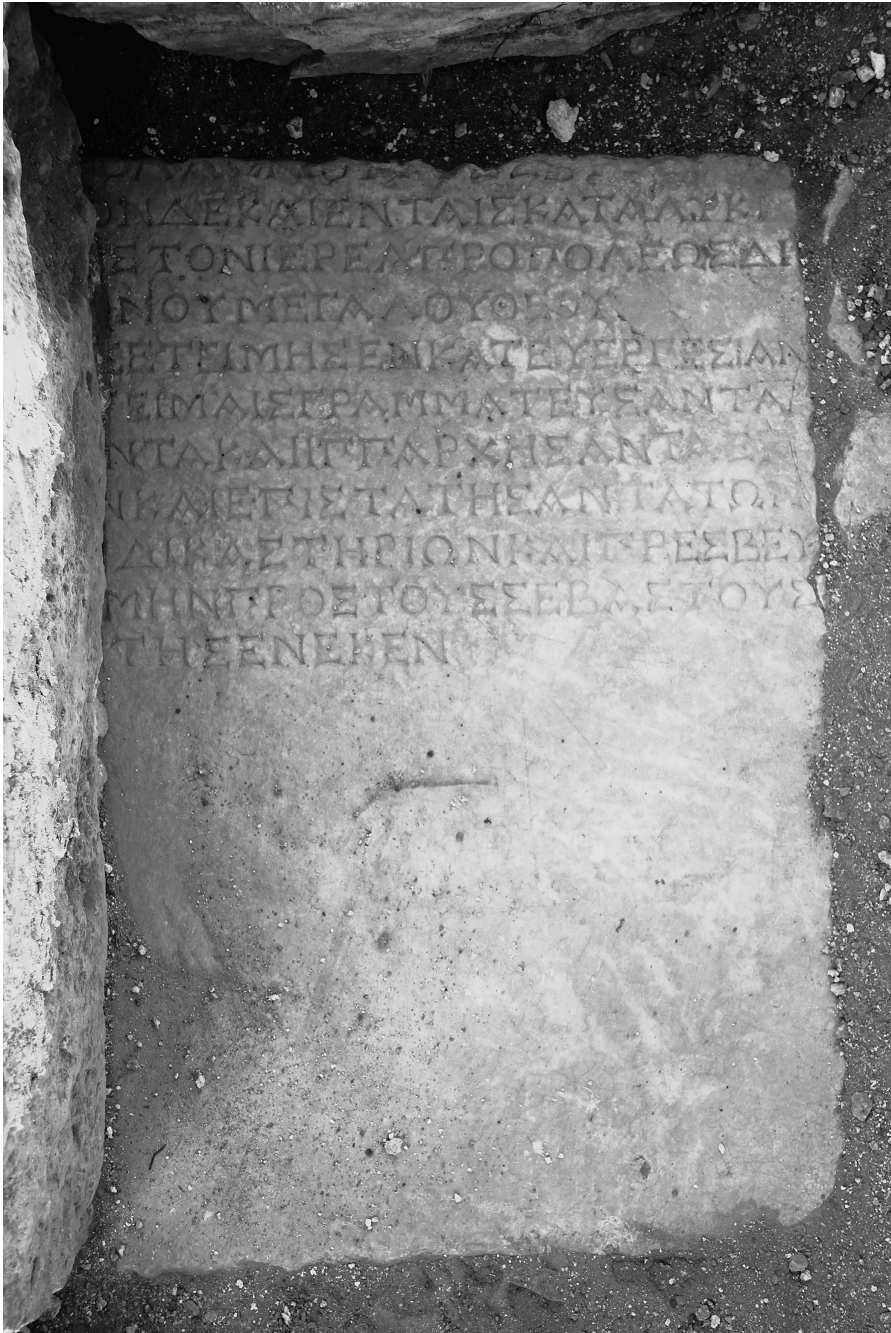 ΟΝΔΕΚΑΙΕΝΤΑΙΣΚΑΤΑΛΥΚΙ
ΣΤΟΝΙΕΡΕΑΠΡΟΠΟΛΕΩΣΔΙ
ΝΟΥΜΕΓΑΛΟΥΘΕΟΥ
ΣΕΤΕΙΜΗΣΕΝΚΑΤΕΥΕΡΓΕΣΙΑΝ
ΤΕΙΜΑΙΣΓΡΑΜΜΑΤΕΥΣΑΝΤΑ
ΝΤΑΚΑΙΙΠΠΑΡΧΗΣΑΝΤΑ
ΝΚΑΙΕΠΙΣΤΑΤΗΣΑΝΤΑΤΩΝ
ΔΙΚΑΣΤΗΡΙΩΝΚΑΙΠΡΕΣΒΕΥ
ΜΗΝΠΡΟΣΤΟΥΣΣΕΒΑΣΤΟΥΣ
ΤΗΣΕΝΕΚΕΝ